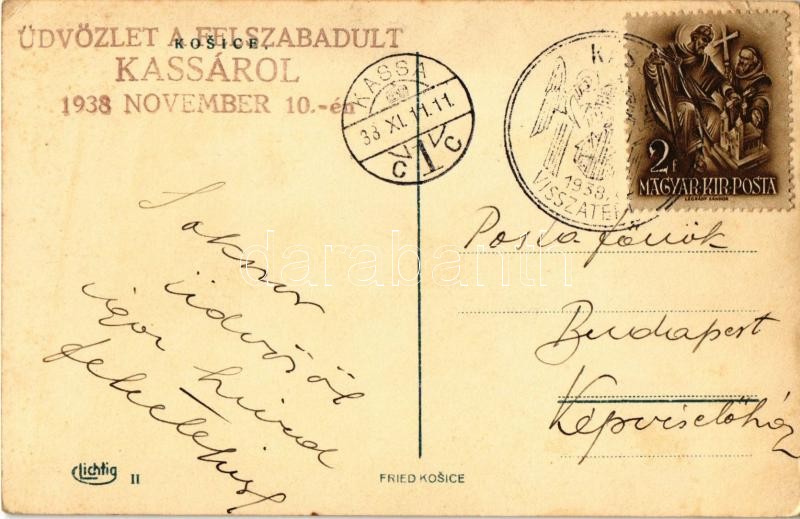 ÜDVÖZLET A FELSZABADULT
KOŠICE
KASSÁROL
1938 NOVEMBER 10.-én
KASSA
38 XI. 11. 11.
C 1 C
KAS
1938.
VISSZATÉR
2f
MAGYAR·KIR·POSTA
LÉGRÁDY SÁNDOR
Sokszor
üdvözöl
igaz híved
Posta főnök
Budapest
Képviselőház
darabanth.com
Lichtig II
FRIED KOŠICE